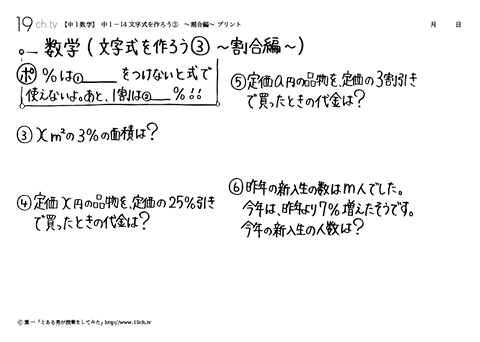 19ch.tv 【中1数学】 中1−14文字式を作ろう③ 〜割合編〜 プリント 月 日
数学(文字式を作ろう③ 〜割合編〜)
ポ %は①____をつけないと式で
使えないよ。あと、1割は②____%!!
③ xm²の3%の面積は?
④ 定価x円の品物を、定価の25%引き
で買ったときの代金は?
⑤ 定価a円の品物を、定価の3割引き
で買ったときの代金は?
⑥ 昨年の新入生の数はm人でした。
今年は、昨年より7%増えたそうです。
今年の新入生の人数は?
© 葉一「とある男が授業をしてみた」http://www.19ch.tv